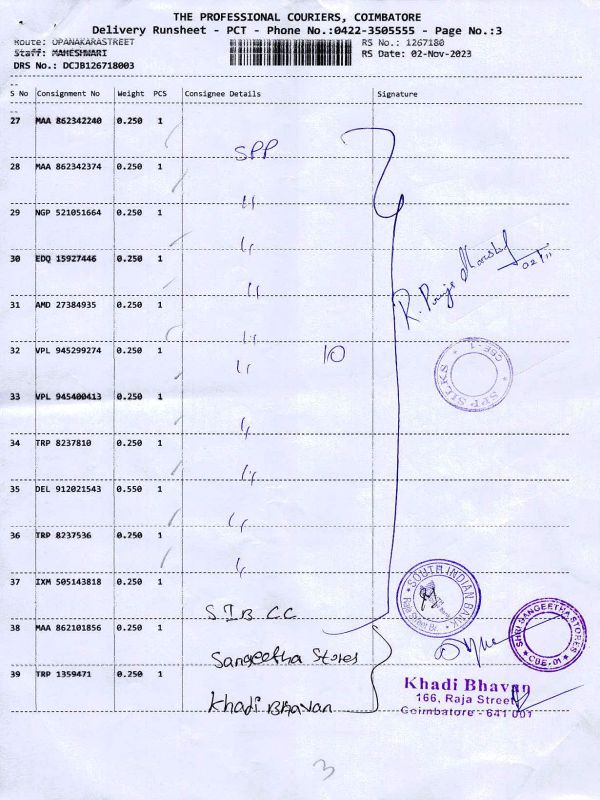 THE PROFESSIONAL COURIERS, COIMBATORE
Delivery Runsheet - PCT - Phone No.:0422-3505555 - Page No.:3
Route: OPANAKARASTREET
RS No.: 1267180
Staff: MAHESHWARI
RS Date: 02-Nov-2023
DRS No.: DCJB126718003
S No Consignment No Weight PCS Consignee Details Signature
27 MAA 862342240 0.250 1
SPP
28 MAA 862342374 0.250 1
29 NGP 521051664 0.250 1
30 EDQ 15927446 0.250 1
02/11
31 AMD 27384935 0.250 1
32 VPL 945299274 0.250 1
10
SPP SILKS * CBE-1 *
33 VPL 945400413 0.250 1
34 TRP 8237810 0.250 1
35 DEL 912021543 0.550 1
36 TRP 8237536 0.250 1
37 IXM 505143818 0.250 1
SIB CC
SOUTH INDIAN BANK
38 MAA 862101856 0.250 1
Sangeetha Stores
SHRI SANGEETHA STORES * CBE-01 *
39 TRP 1359471 0.250 1
Khadi Bhavan
Khadi Bhavan
166, Raja Street
Coimbatore - 641 001
3